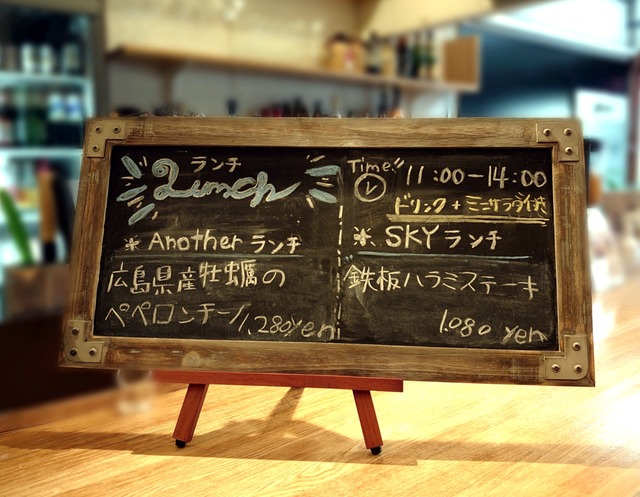 ランチ
Lunch
* Another ランチ
広島県産牡蠣の
ペペロンチーノ 1,280yen
Time!!
11:00-14:00
ドリンク + ミニサラダ付
*. SKY ランチ
鉄板ハラミステーキ
1.080 yen